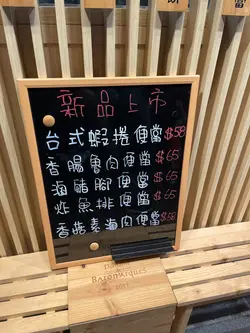 新品上市
台式蝦捲便當$58
香腸魯肉便當$65
滷豬腳便當$65
炸魚排便當$65
香燕素滷肉便當$58
BaronArques